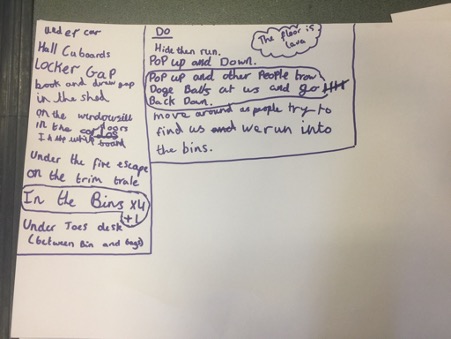 under car
Hall Cuboards
Locker Gap
book and draw gap
in the shed
on the windowsill
in the doors
board
Under the fire escape
on the trim trale
In the Bins x4
+1
Under Joes desk
(between Bin and bags)
Do
Hide then run.
Pop up and Down.
Pop up and other People trow
Doge Balls at us and go
Back Down.
move around as people try to
find us and we run into
the bins.
The floor is
Lava